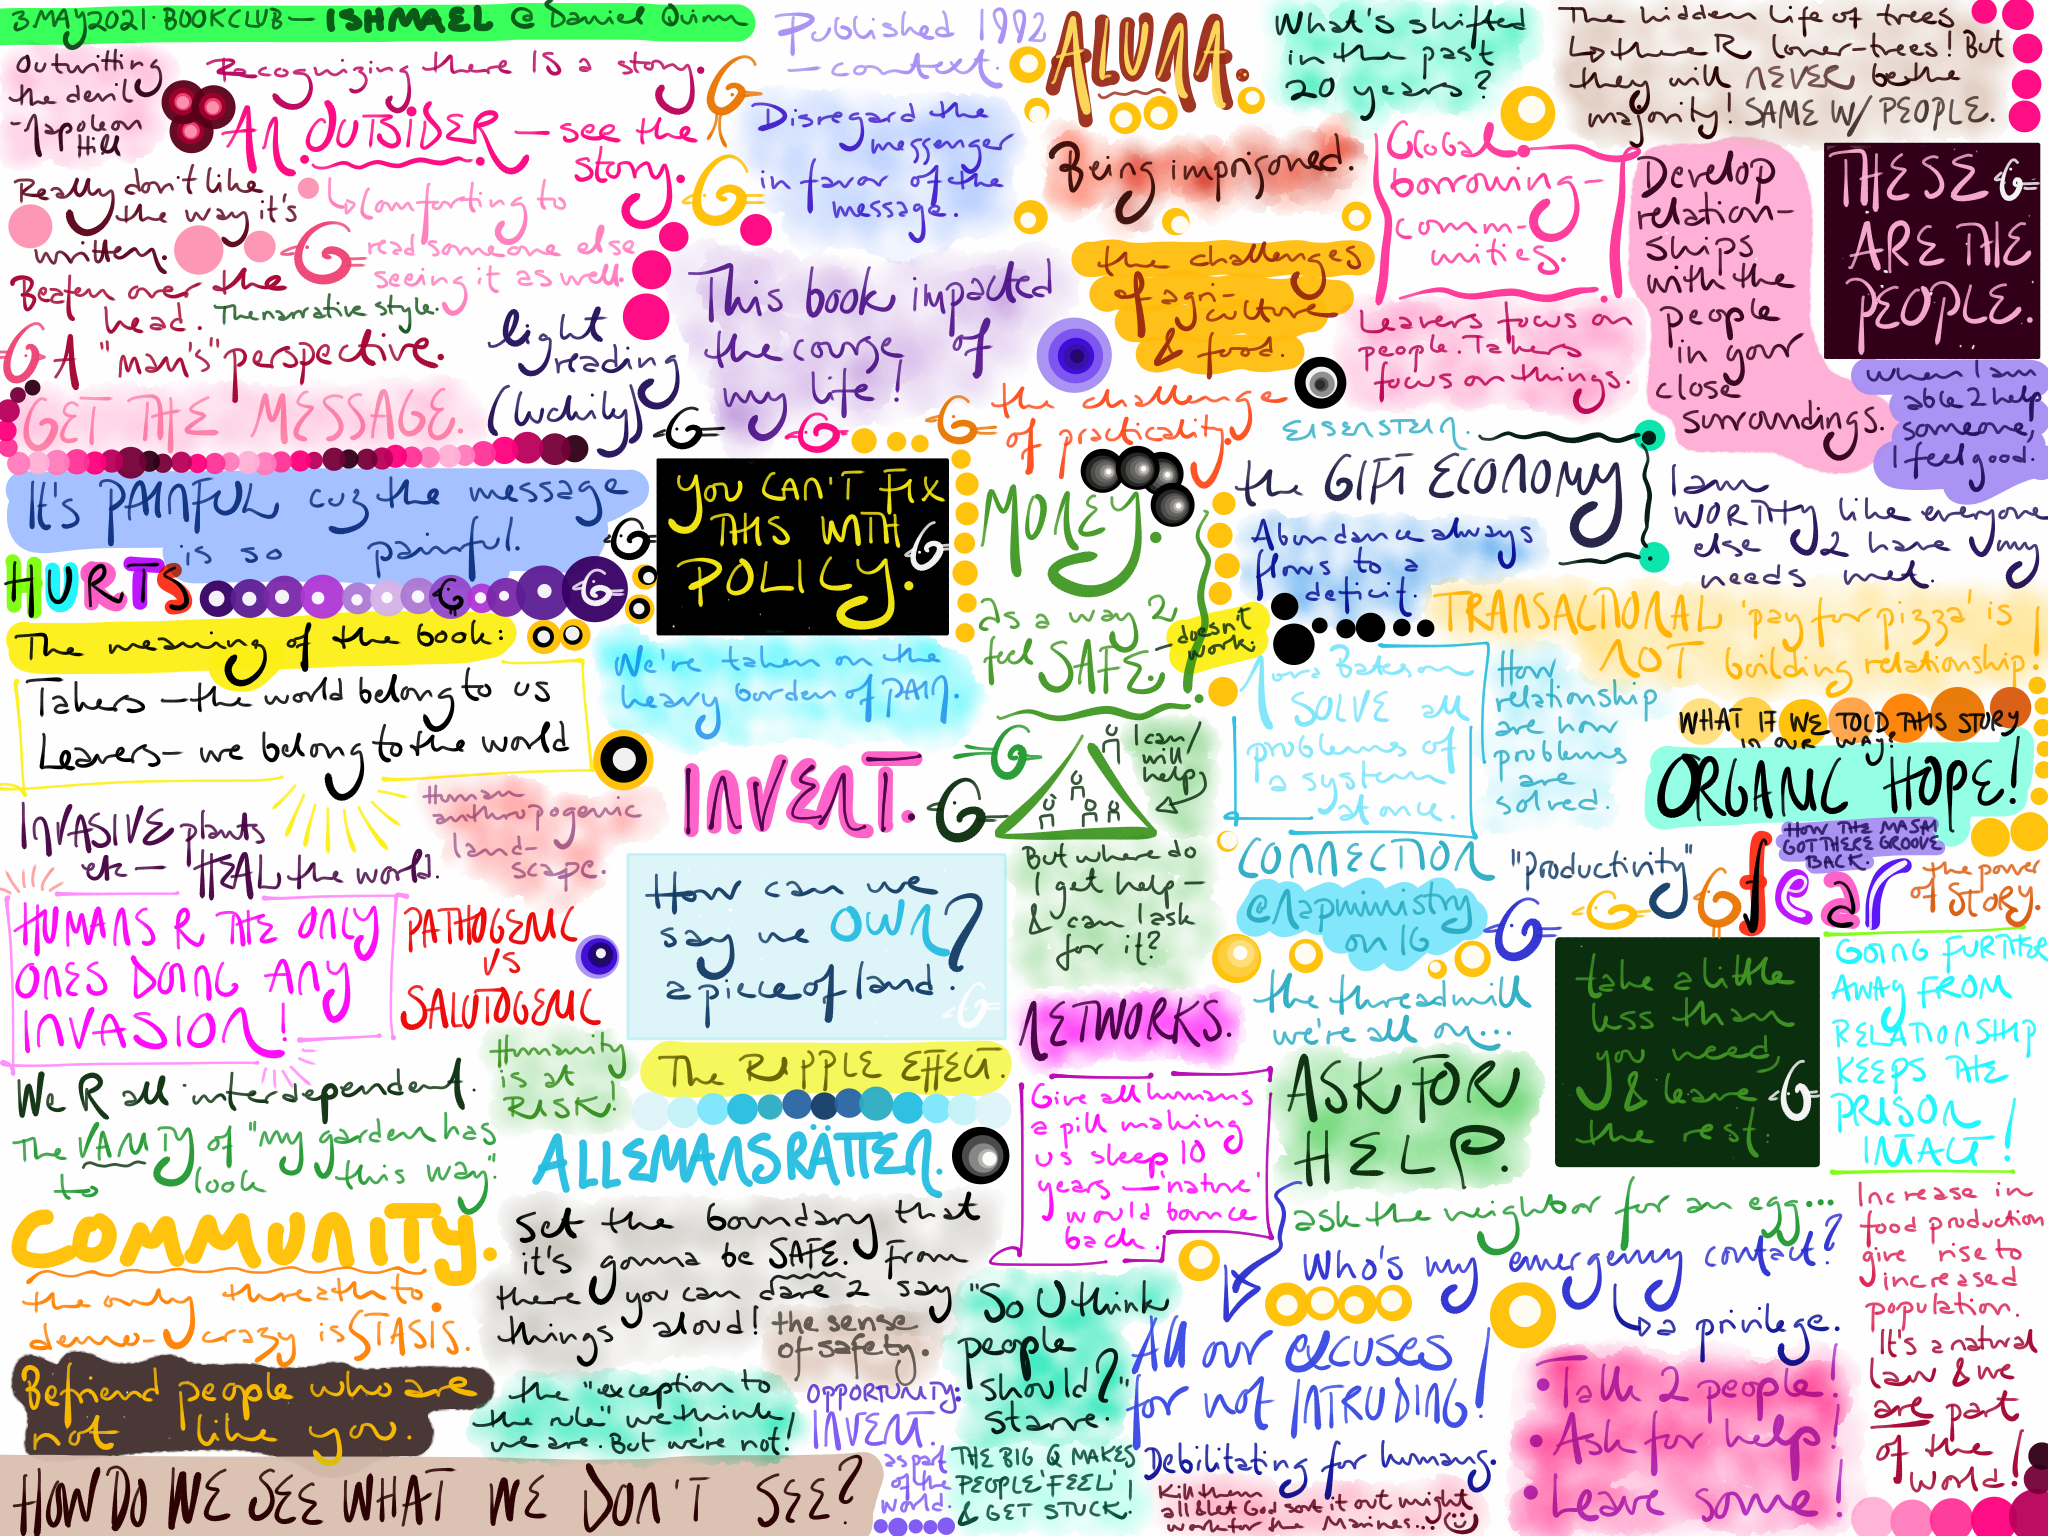 3 MAY 2021 · BOOKCLUB — ISHMAEL @ Daniel Quinn
Outwitting
the devil
- Napoleon
Hill
Recognizing there IS a story.
AN OUTSIDER — see the
story.
Really don't like
the way it's
written.
↳ Comforting to
read someone else
seeing it as well.
Beaten over the
head.
The narrative style.
A "man's" perspective.
GET THE MESSAGE.
light
reading
(luckily)
Published 1992
— context.
Disregard the
messenger
in favor of the
message.
This book impacted
the course of
my life!
ALUNA.
Being imprisoned.
the challenges
of agri-
culture
& food.
the challenge
of practicality.
What's shifted
in the past
20 years?
Global
borrowing-
comm-
unities.
Leavers focus on
people. Takers
focus on things.
The hidden life of trees
↳ there R loner-trees! But
they will NEVER be the
majority! SAME W/ PEOPLE.
Develop
relation-
ships
with the
people
in your
close
surroundings.
THESE
ARE THE
PEOPLE.
when I am
able 2 help
someone,
I feel good.
It's PAINFUL cuz the message
is so painful.
HURTS
The meaning of the book:
Takers — the world belong to us
Leavers — we belong to the world
YOU CAN'T FIX
THIS WITH
POLICY.
We're taken on the
heavy burden of PAIN.
MONEY.
as a way 2
feel SAFE. —
doesn't
work.
EISENSTEIN.
the GIFT ECONOMY
Abundance always
flows to a
deficit.
I am
WORTHY like everyone
else 2 have my
needs met.
TRANSACTIONAL 'pay for pizza' is
NOT building relationship!
Nora Bateson
SOLVE all
problems of
a system
at once.
How
relationship
are how
problems
are
solved.
WHAT IF WE TOLD THIS STORY
in our way?
ORGANIC HOPE!
HOW THE MASAI
GOT THERE GROOVE
BACK.
INVASIVE plants
etc — HEAL the world.
Human
anthropogenic
land-
scape.
INVENT.
I can/
will
help
But where do
I get help —
& can I ask
for it?
CONNECTION
@napministry
on IG
"productivity"
fear
the power
of STORY.
HUMANS R THE ONLY
ONES DOING ANY
INVASION!
PATHOGENIC
VS
SALUTOGENIC
How can we
say we OWN
a piece of land?
NETWORKS.
the threadmill
we're all on...
take a little
less than
you need,
& leave
the rest.
GOING FURTHER
AWAY FROM
RELATIONSHIP
KEEPS THE
PRISON
INTACT!
We R all interdependent.
Humanity
is at
RISK!
The RIPPLE EFFECT.
ALLEMANSRÄTTEN.
Give all humans
a pill making
us sleep 10
years — 'nature'
would bounce
back.
ASK FOR
HELP.
ask the neighbor for an egg...
The VANITY of "my garden has
to look this way."
COMMUNITY.
the only threath to
demo-crazy is STASIS.
Set the boundary that
it's gonna be SAFE. From
there you can dare 2 say
things aloud!
the sense
of safety.
Who's my emergency contact?
↳ a privilege.
Increase in
food production
give rise to
increased
population.
It's a natural
law & we
are part
of the
world!
Befriend people who are
not like you.
the "exception to
the rule" we think
we are. But we're not!
OPPORTUNITY:
INVENT.
as part
of the
world.
"So U think
people
should
starve?"
THE BIG Q MAKES
PEOPLE 'FEEL'
& GET STUCK!
All our excuses
for not INTRUDING!
Debilitating for humans.
Kill them
all & let God sort it out might
work for the Marines...
• Talk 2 people!
• Ask for help!
• Leave some!
HOW DO WE SEE WHAT WE DON'T SEE?